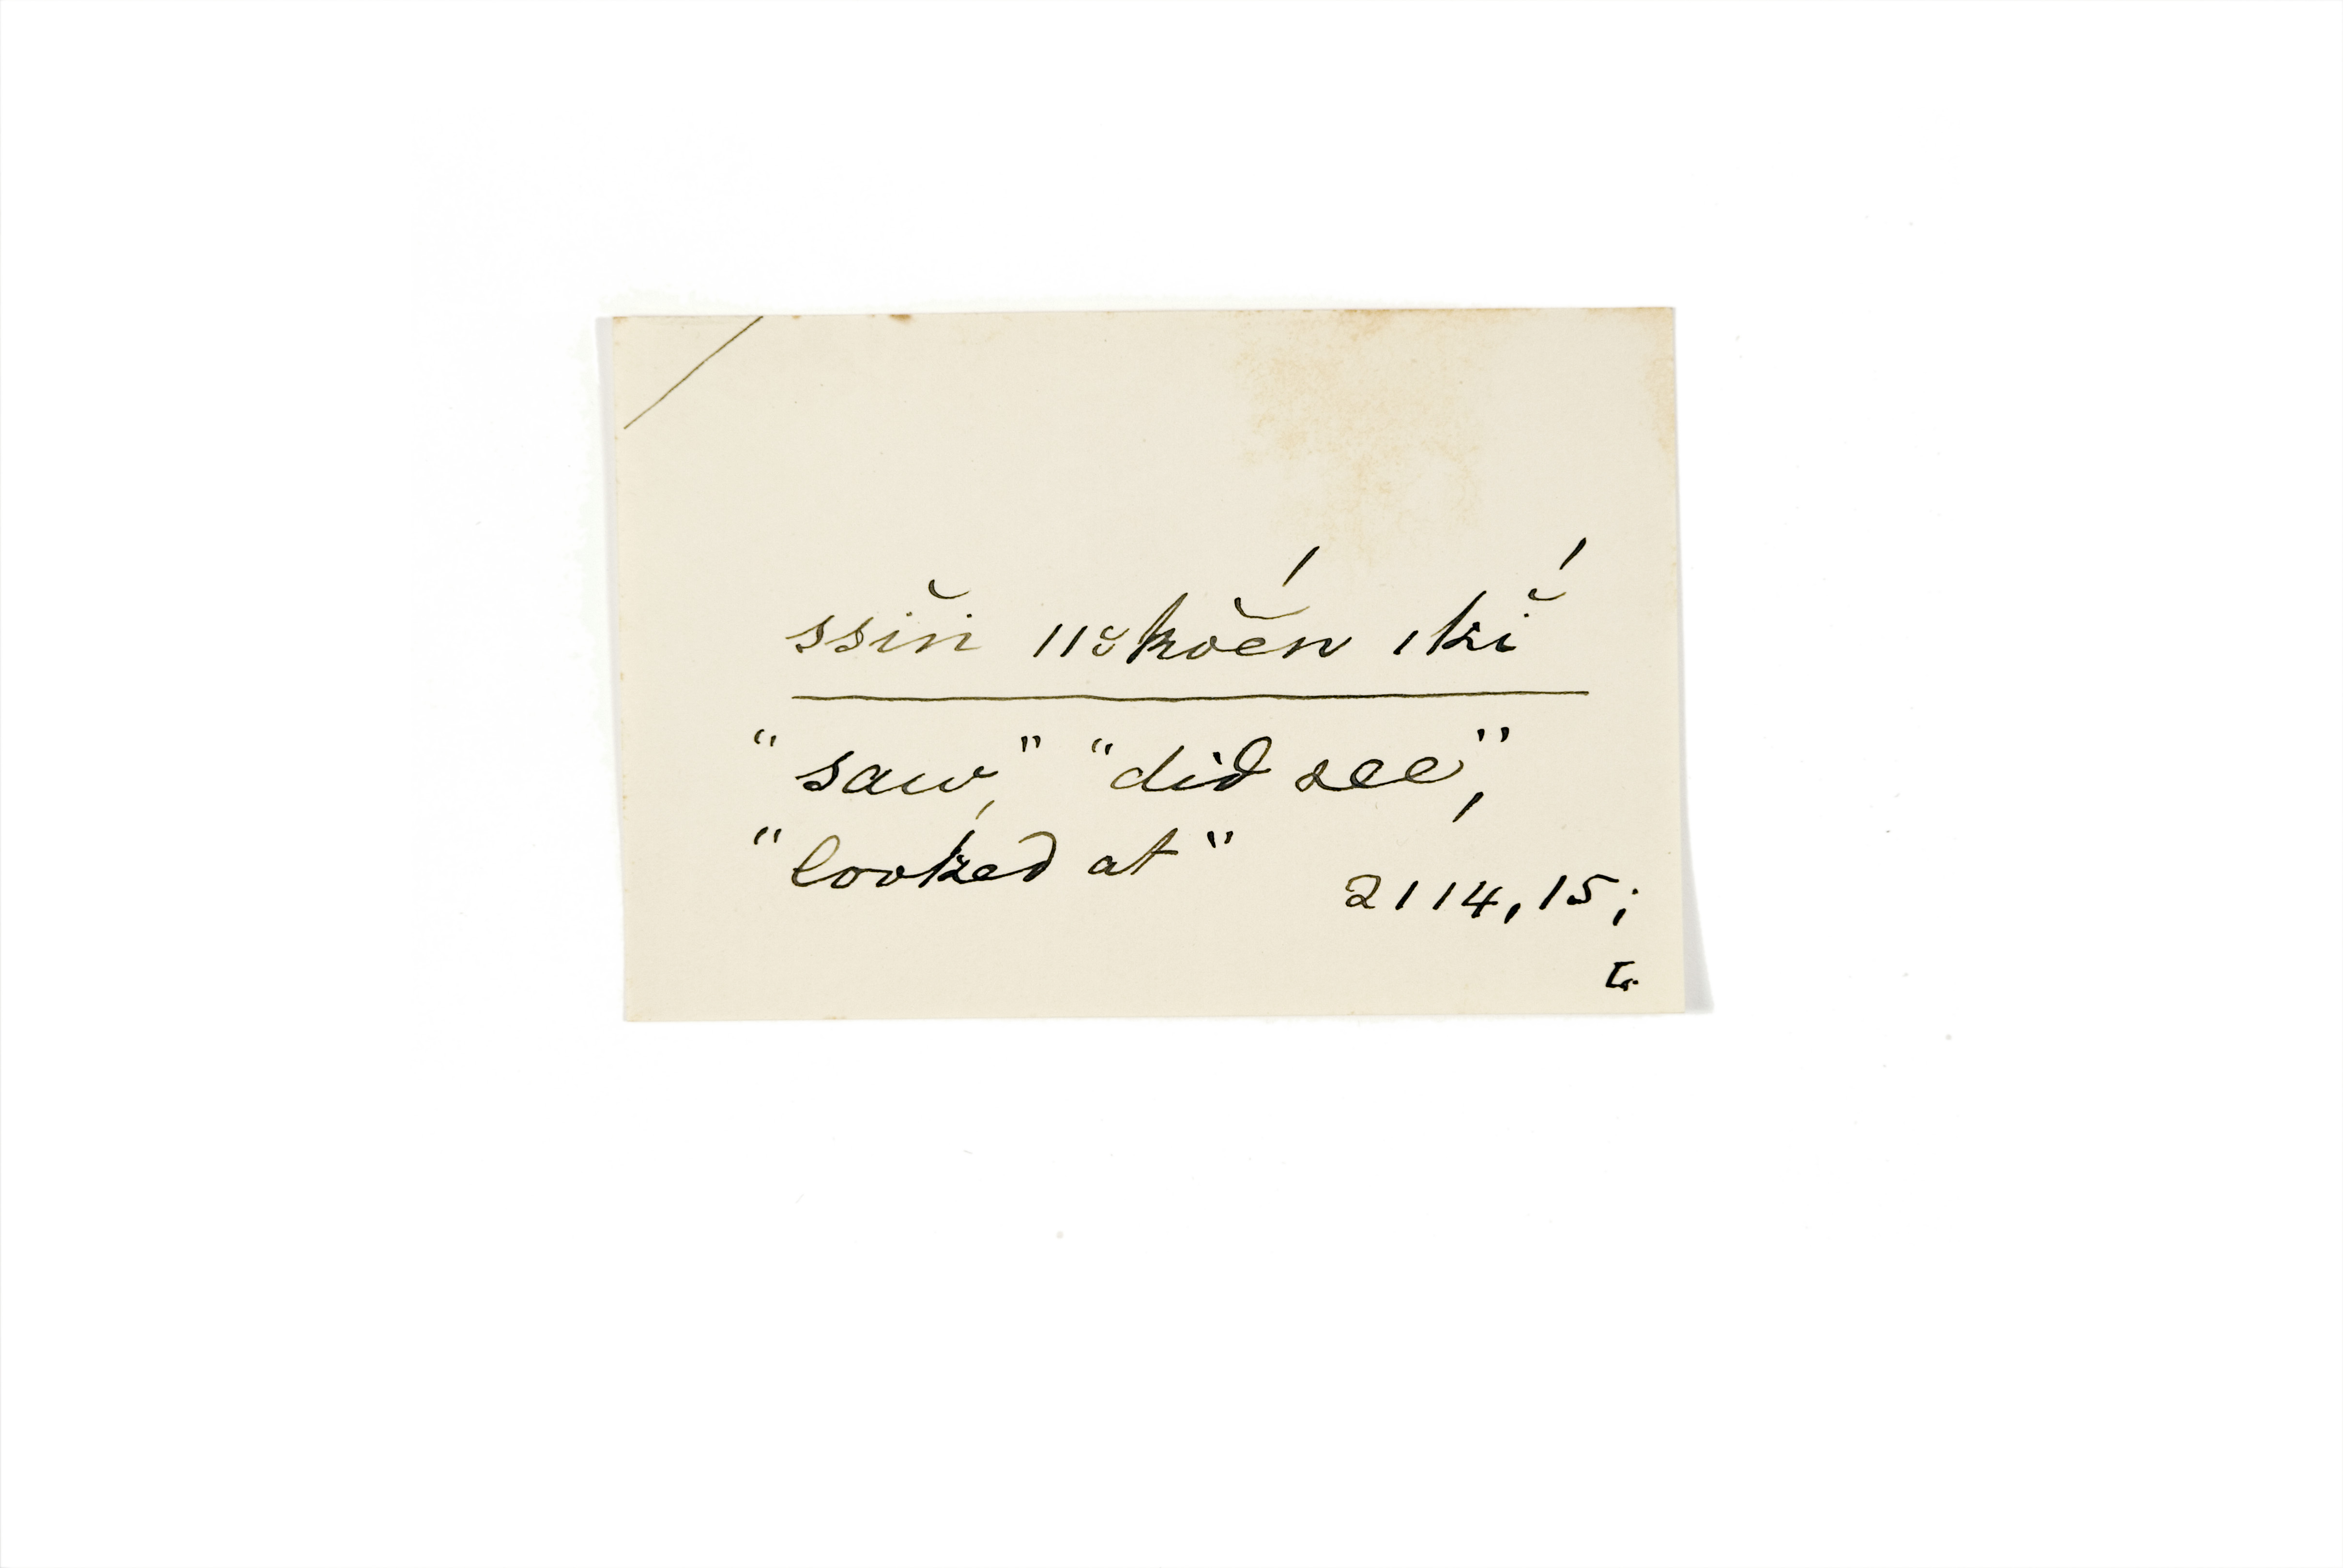 ssĭn ıı̆kŏĕ́n ıkĭ́
"saw," "did see",
"looked at"
2114, 15;